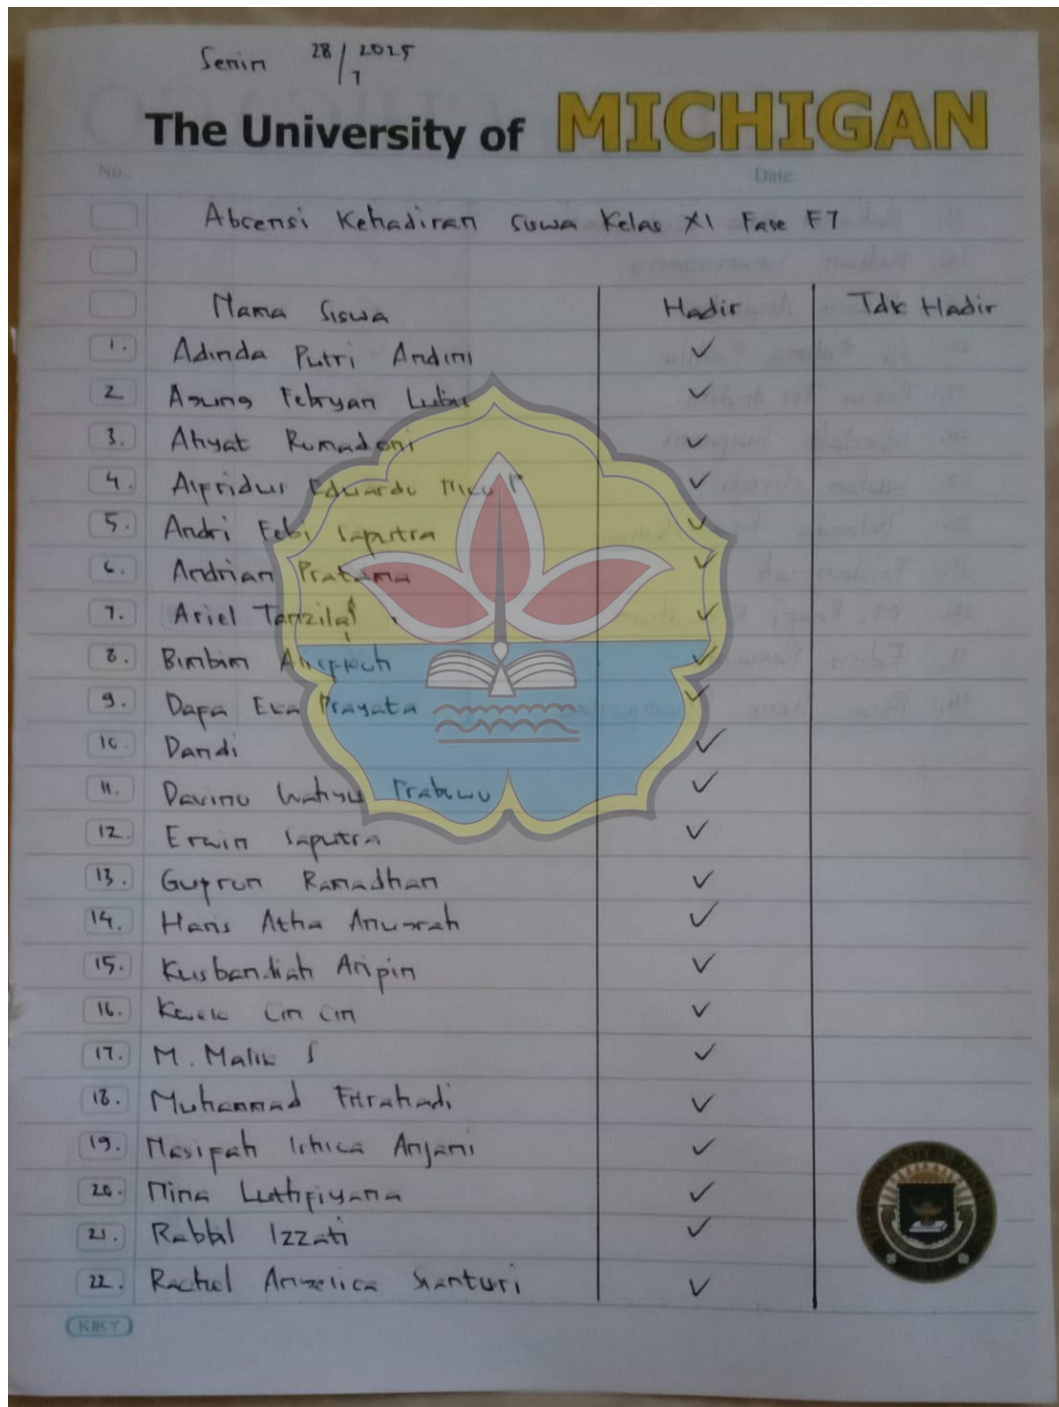 Senin 28/7 2025
The University of MICHIGAN
No.. Date
Absensi Kehadiran Siswa Kelas XI Fase F7
Nama Siswa Hadir Tdk Hadir
1. Adinda Putri Andini ✓
2 Agung Febryan Lubis ✓
3. Ahyat Rumadoni ✓
4. Alpridus Eduardo ✓
5. Andri Febi Saputra ✓
6. Andrian Pratama ✓
7. Ariel Tanzilal ✓
8. Bimbim ✓
9. Dapa Eka Prayata ✓
10 Dandi ✓
11. Davino Wahyu Prabowo ✓
12. Erwin Saputra ✓
13. Gupron Ramadhan ✓
14. Haris Atha Anugrah ✓
15. Kusbandiah Aripin ✓
16. Cin Cin ✓
17. M. Malik S ✓
18. Muhammad Fitrahadi ✓
19. Nasipah Ichica Anjani ✓
20. Nina Luthpiyana ✓
21. Rabbil Izzati ✓
22. Rachel Angelica Sianturi ✓
KIKY